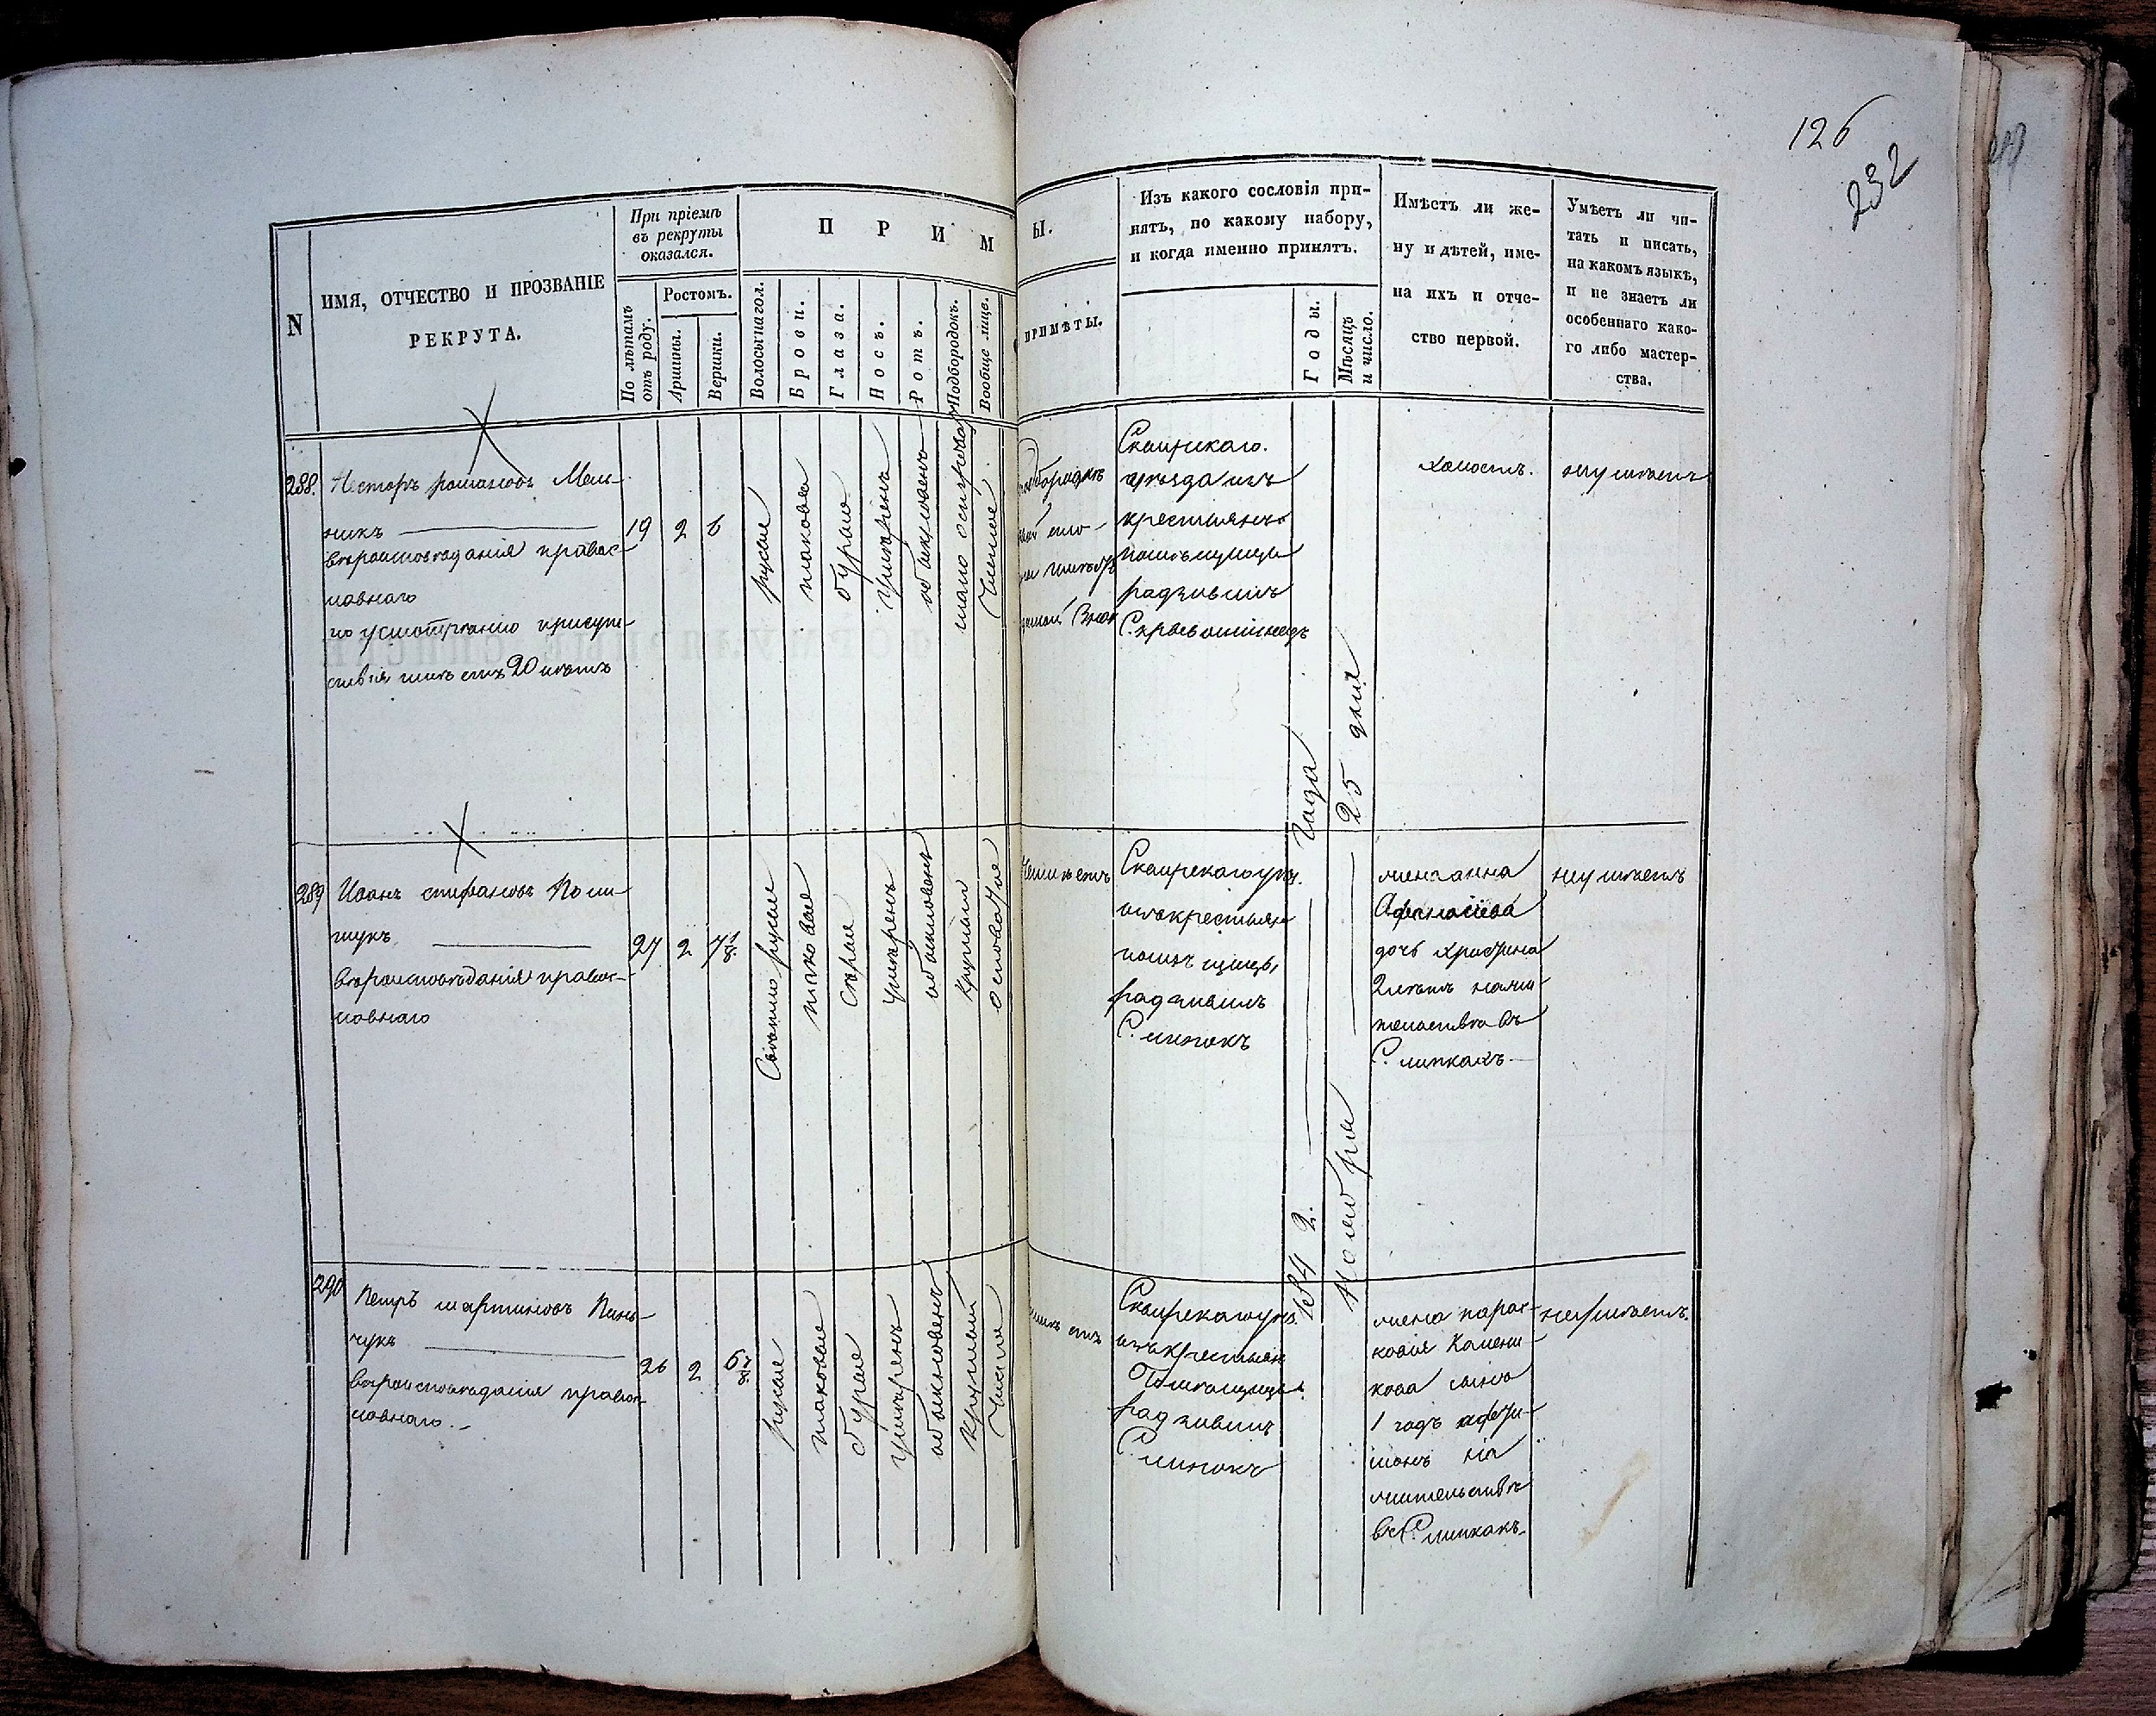 126
232
N
ИМЯ, ОТЧЕСТВО И ПРОЗВАНІЕ
РЕКРУТА.
При пріемѣ
въ рекруты
оказался.
По лѣтамъ
отъ роду.
Ростомъ.
Аршины.
Вершки.
П Р И М
Волосы на гол.
Брови.
Глаза.
Носъ.
Ротъ.
Подбородокъ.
Вообще лице.
Ы.
ПРИМѢТЫ.
Изъ какого сословія при-
нятъ, по какому набору,
и когда именно принятъ.
Годы.
Мѣсяцъ
и число.
Имѣетъ ли же-
ну и дѣтей, име-
на ихъ и отче-
ство первой.
Умѣетъ ли чи-
тать и писать,
на какомъ языкѣ,
и не знаетъ ли
особеннаго како-
го либо мастер-
ства.
288.
Несторъ романовъ Мель-
никъ
вѣроисповѣданія правос-
лавнаго
по усмотрѣнію присут-
ствія имѣетъ 20 лѣтъ
19
2
6
русые
таковые
бурые
умѣренъ
обыкновенъ
мало островат
Чистое
Сквирскаго
уѣзда изъ
крестьянъ
помѣщицы
радзивилъ
холостъ.
неумѣетъ
289
Иванъ стефановъ Поли-
щукъ
вѣроисповѣданія правос-
лавнаго
27
2
7 1/8.
Свѣтлорусые
таковые
сѣрые
умѣренъ
обыкновенъ
круглый
осповатое
Неимѣетъ
Сквирскаго уѣз.
изъ крестьян
помѣщицы
радзивилъ
С. липокъ
жена анна
Афанасіева
дочь христина
2 лѣтъ на жи-
тельствѣ въ
С. липкахъ
неумѣетъ
1842.
года
Ноября
25 дня
290
Петръ мартиновъ Пань-
чукъ
вѣроисповѣданія правос-
лавнаго.
26
2
6 7/8.
русые
таковые
бурые
умѣренъ
обыкновенъ
круглый
Чистое
Сквирскаго уѣз.
изъ крестьян
Помѣщицы
радзивилъ
С. липокъ
жена парас-
ковія
1 годъ
жительствѣ
въ С. липкахъ
неумѣетъ.